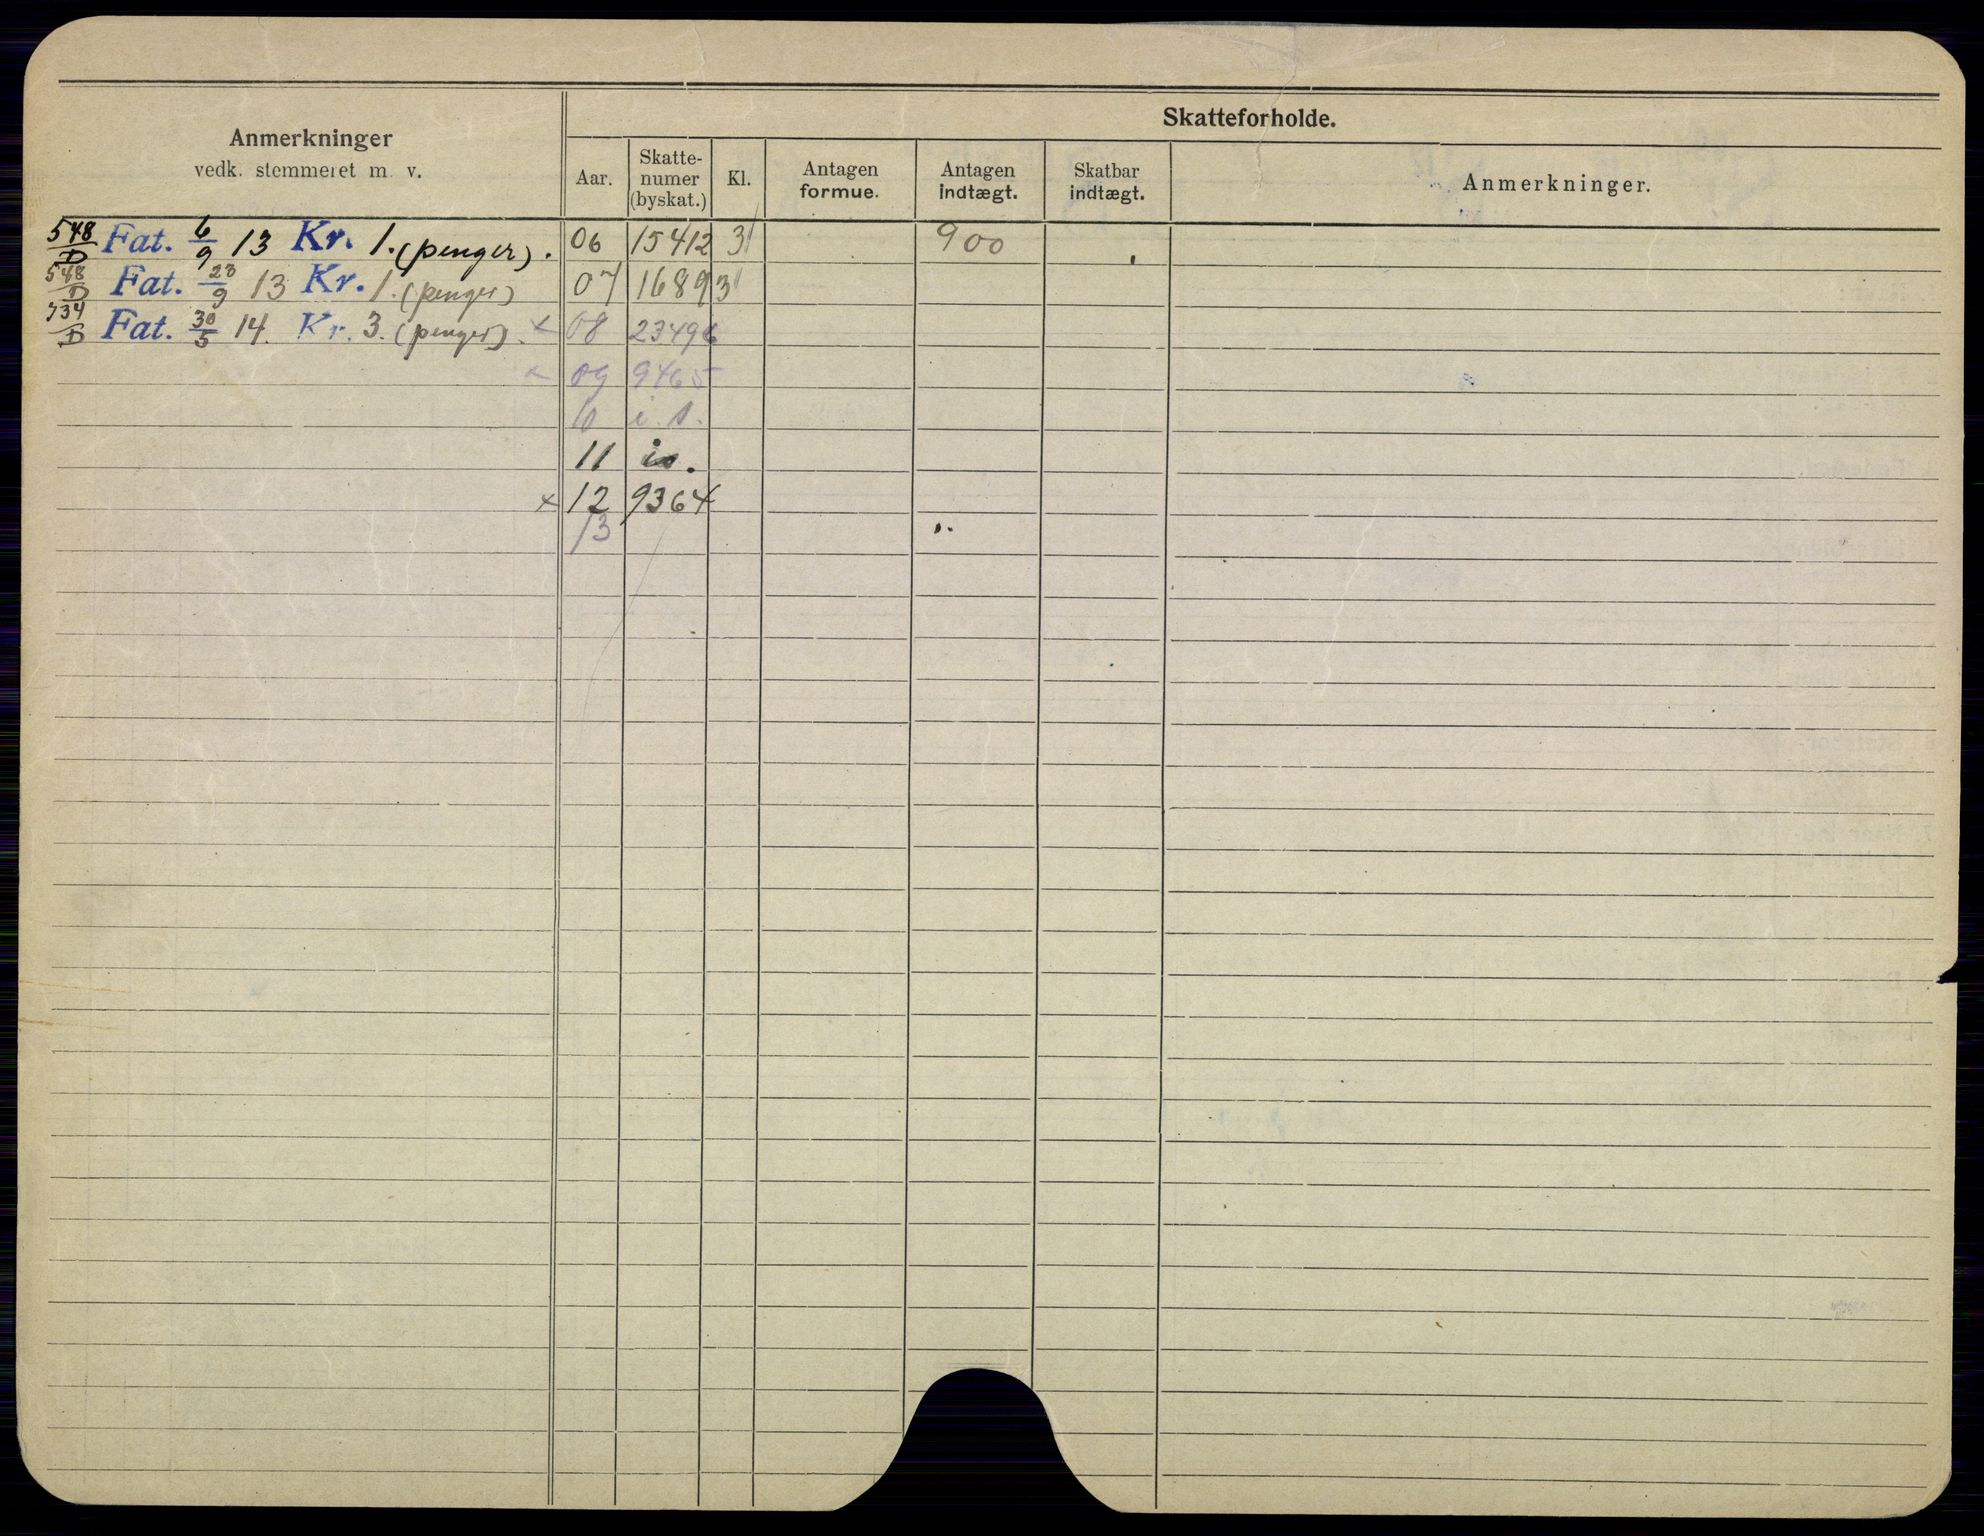 Anmerkninger
vedk. stemmeret m. v.
Skatteforholde.
Aar.
Skatte-
numer
(byskat.)
Kl.
Antagen
formue.
Antagen
indtægt.
Skatbar
indtægt.
Anmerkninger.
548/D Fat. 6/9 13 Kr. 1. (penger). 06 15412 3 900
548/D Fat. 23/9 13 Kr. 1. (penger) 07 1689 3
734/D Fat. 30/5 14. Kr. 3. (penger). x 08 23496
09 9465
10 i. s.
11 is.
x 12 9364
13